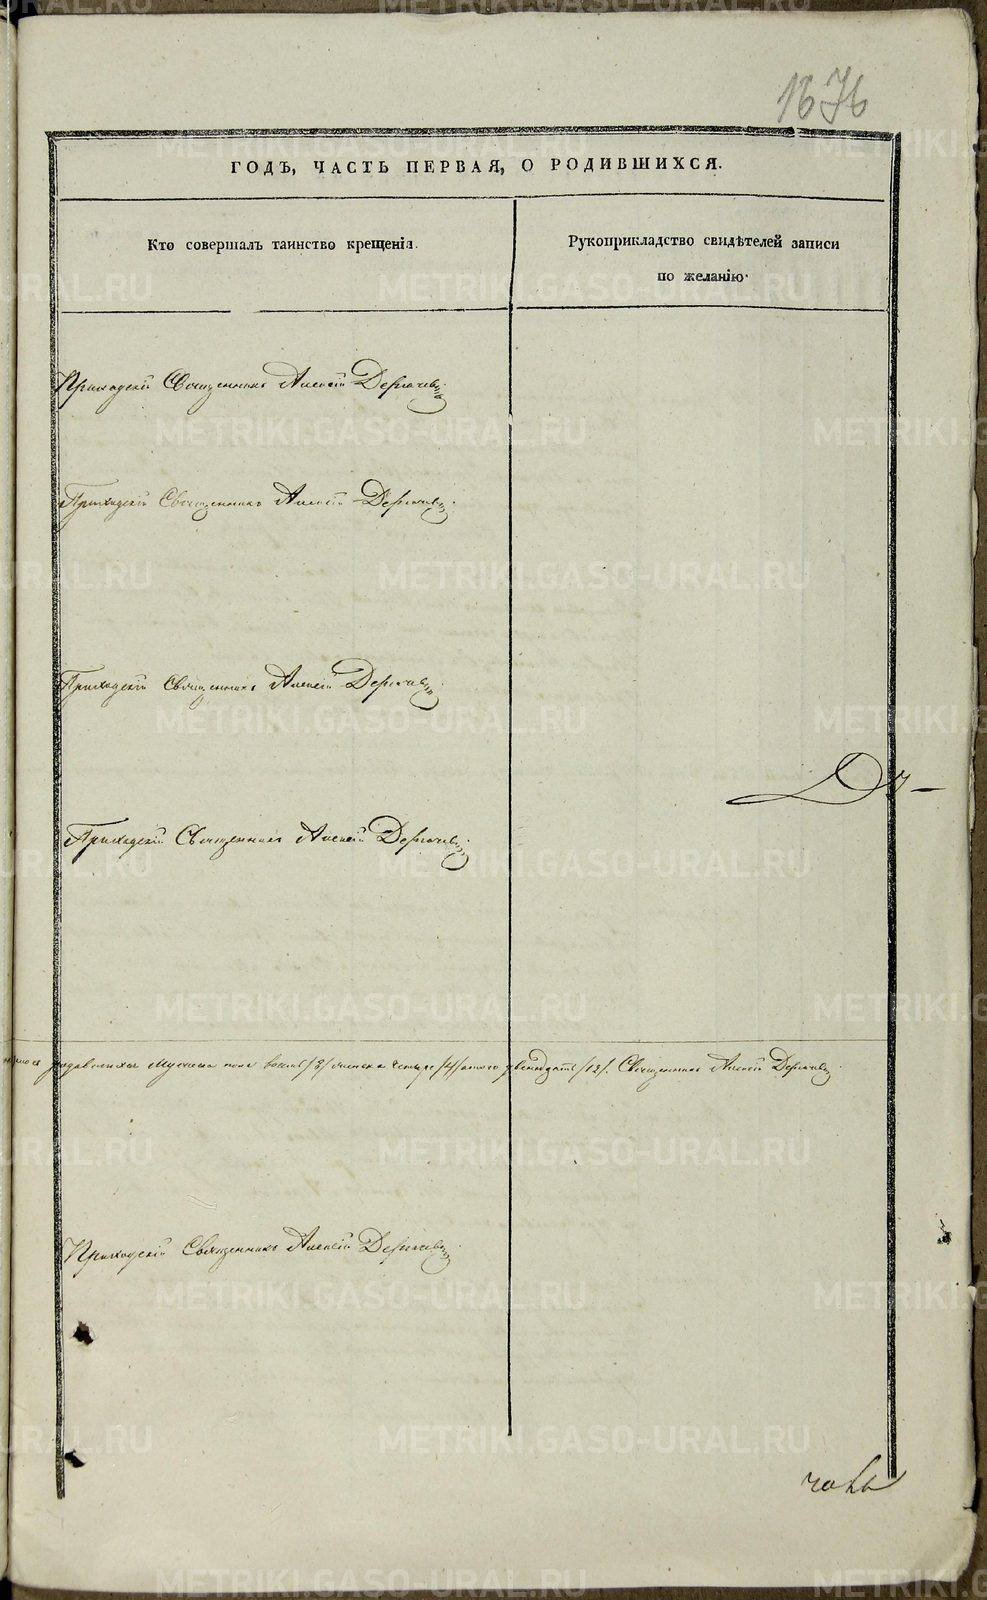 1676
ГОДЪ, ЧАСТЬ ПЕРВАЯ, О РОДИВШИХСЯ.
Кто совершалъ таинство крещенія.
Рукоприкладство свидѣтелей записи
по желанію.
Приходскій Священникъ Алексій
Приходскій Священникъ Алексій
Приходскій Священникъ Алексій
Приходскій Священникъ Алексій
родившихся мужеска пола восемь /8/ женска четыре /4/ двенадцать /12/. Священникъ Алексій
Приходскій Священникъ Алексій
METRIKI.GASO-URAL.RU